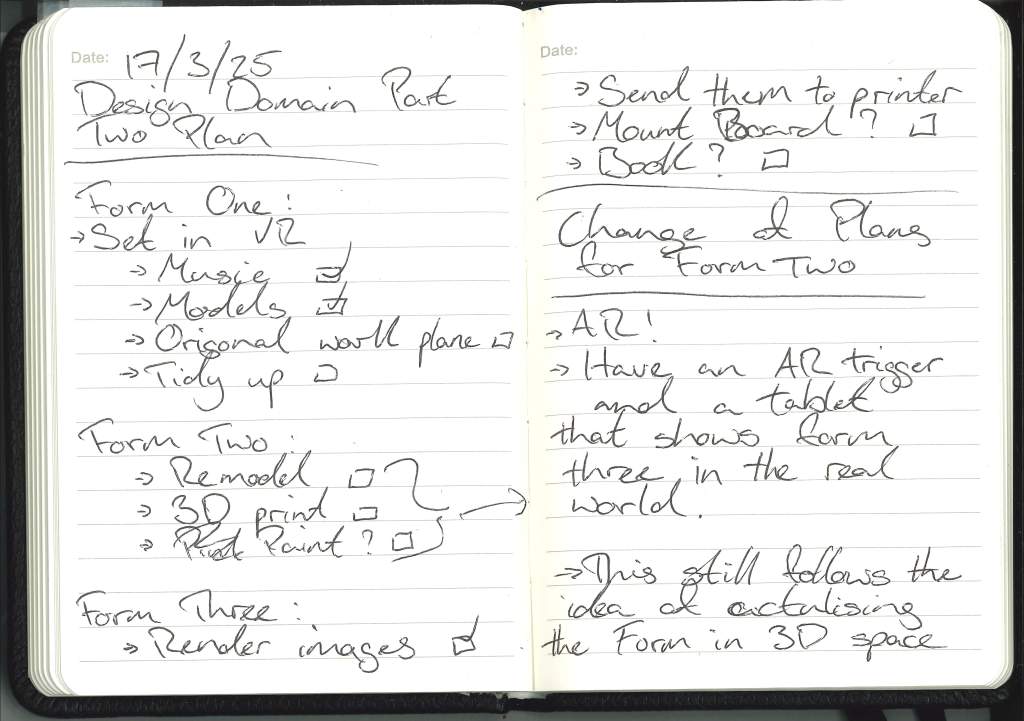 Date: 17/3/25
Design Domain Part
Two Plan
Form One:
→ Set in VR
→ Music ☑
→ Models ☑
→ Origonal work plane ☐
→ Tidy up ☐
Form Two:
→ Remodel ☐
→ 3D print ☐
→ Paint? ☐
Form Three:
→ Render images ☑
Date:
→ Send them to printer
→ Mount Board? ☐
→ Book? ☐
Change of Plans
for Form Two
→ AR!
→ Have an AR trigger
and a tablet
that shows form
three in the real
world.
→ This still follows the
idea of actulising
the Form in 3D space